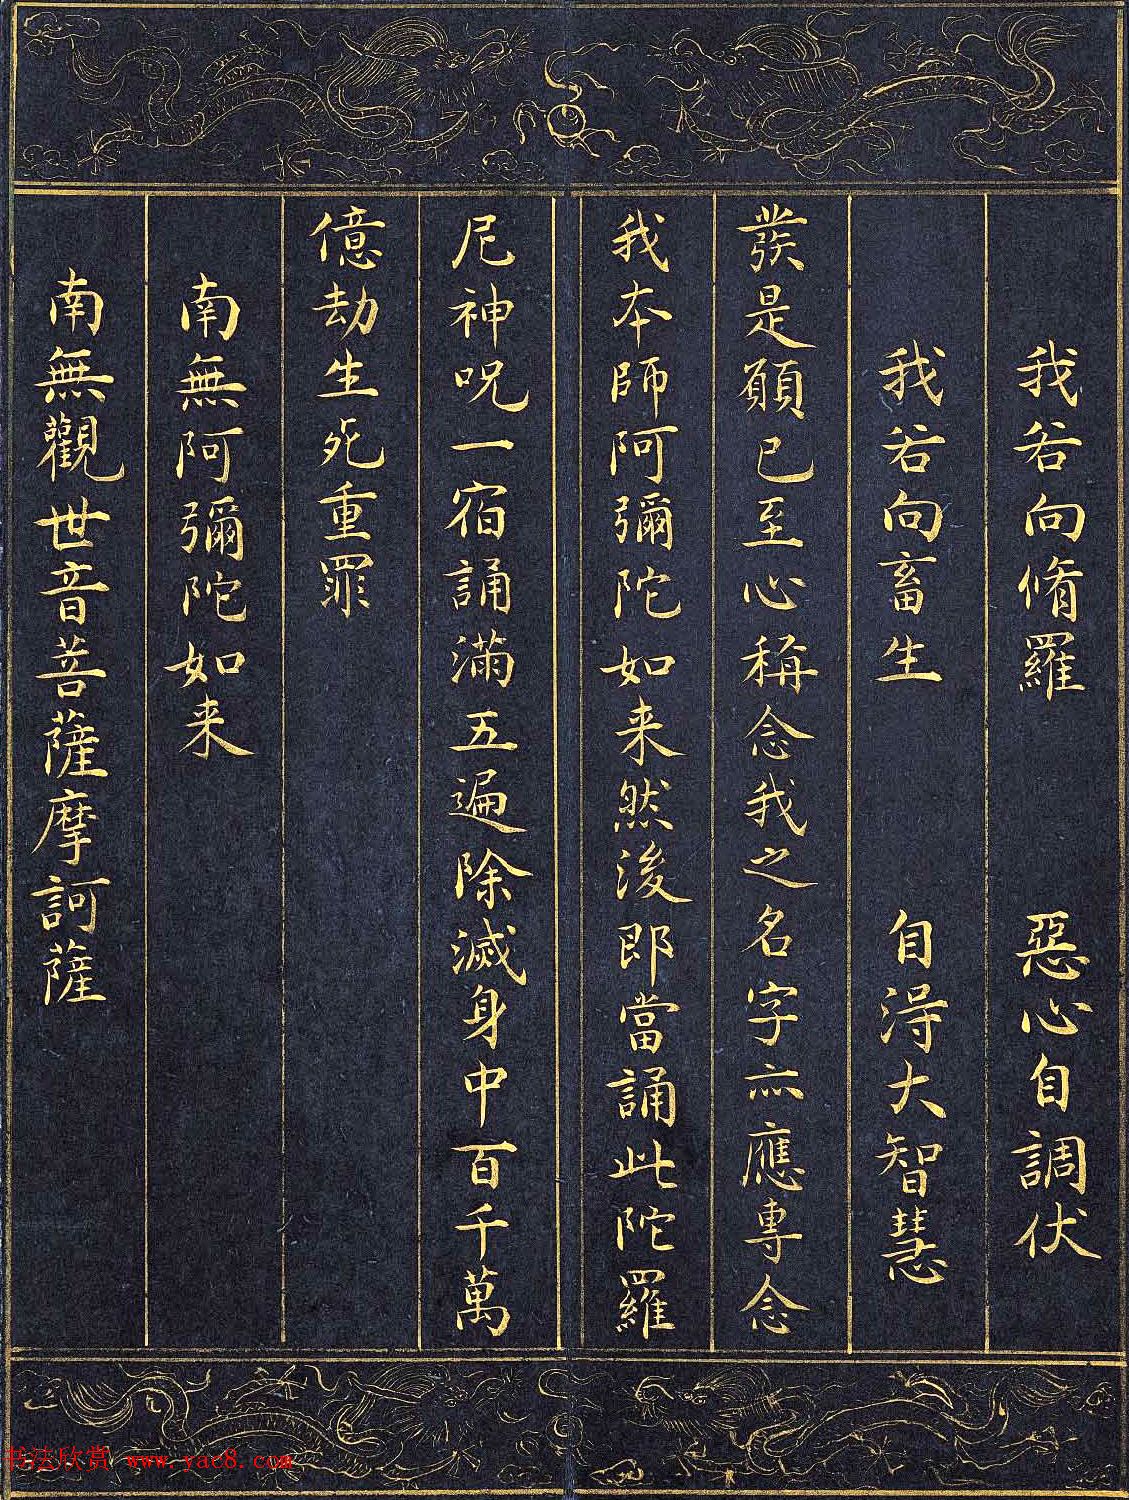 我若向脩羅　惡心自調伏
我若向畜生　自淂大智慧
發是願已至心稱念我之名字亦應專念
我本師阿彌陀如来然後即當誦此陀羅
尼神呪一宿誦滿五遍除滅身中百千萬
億劫生死重罪
南無阿彌陀如来
南無觀世音菩薩摩訶薩
书法欣赏 www.yac8.com